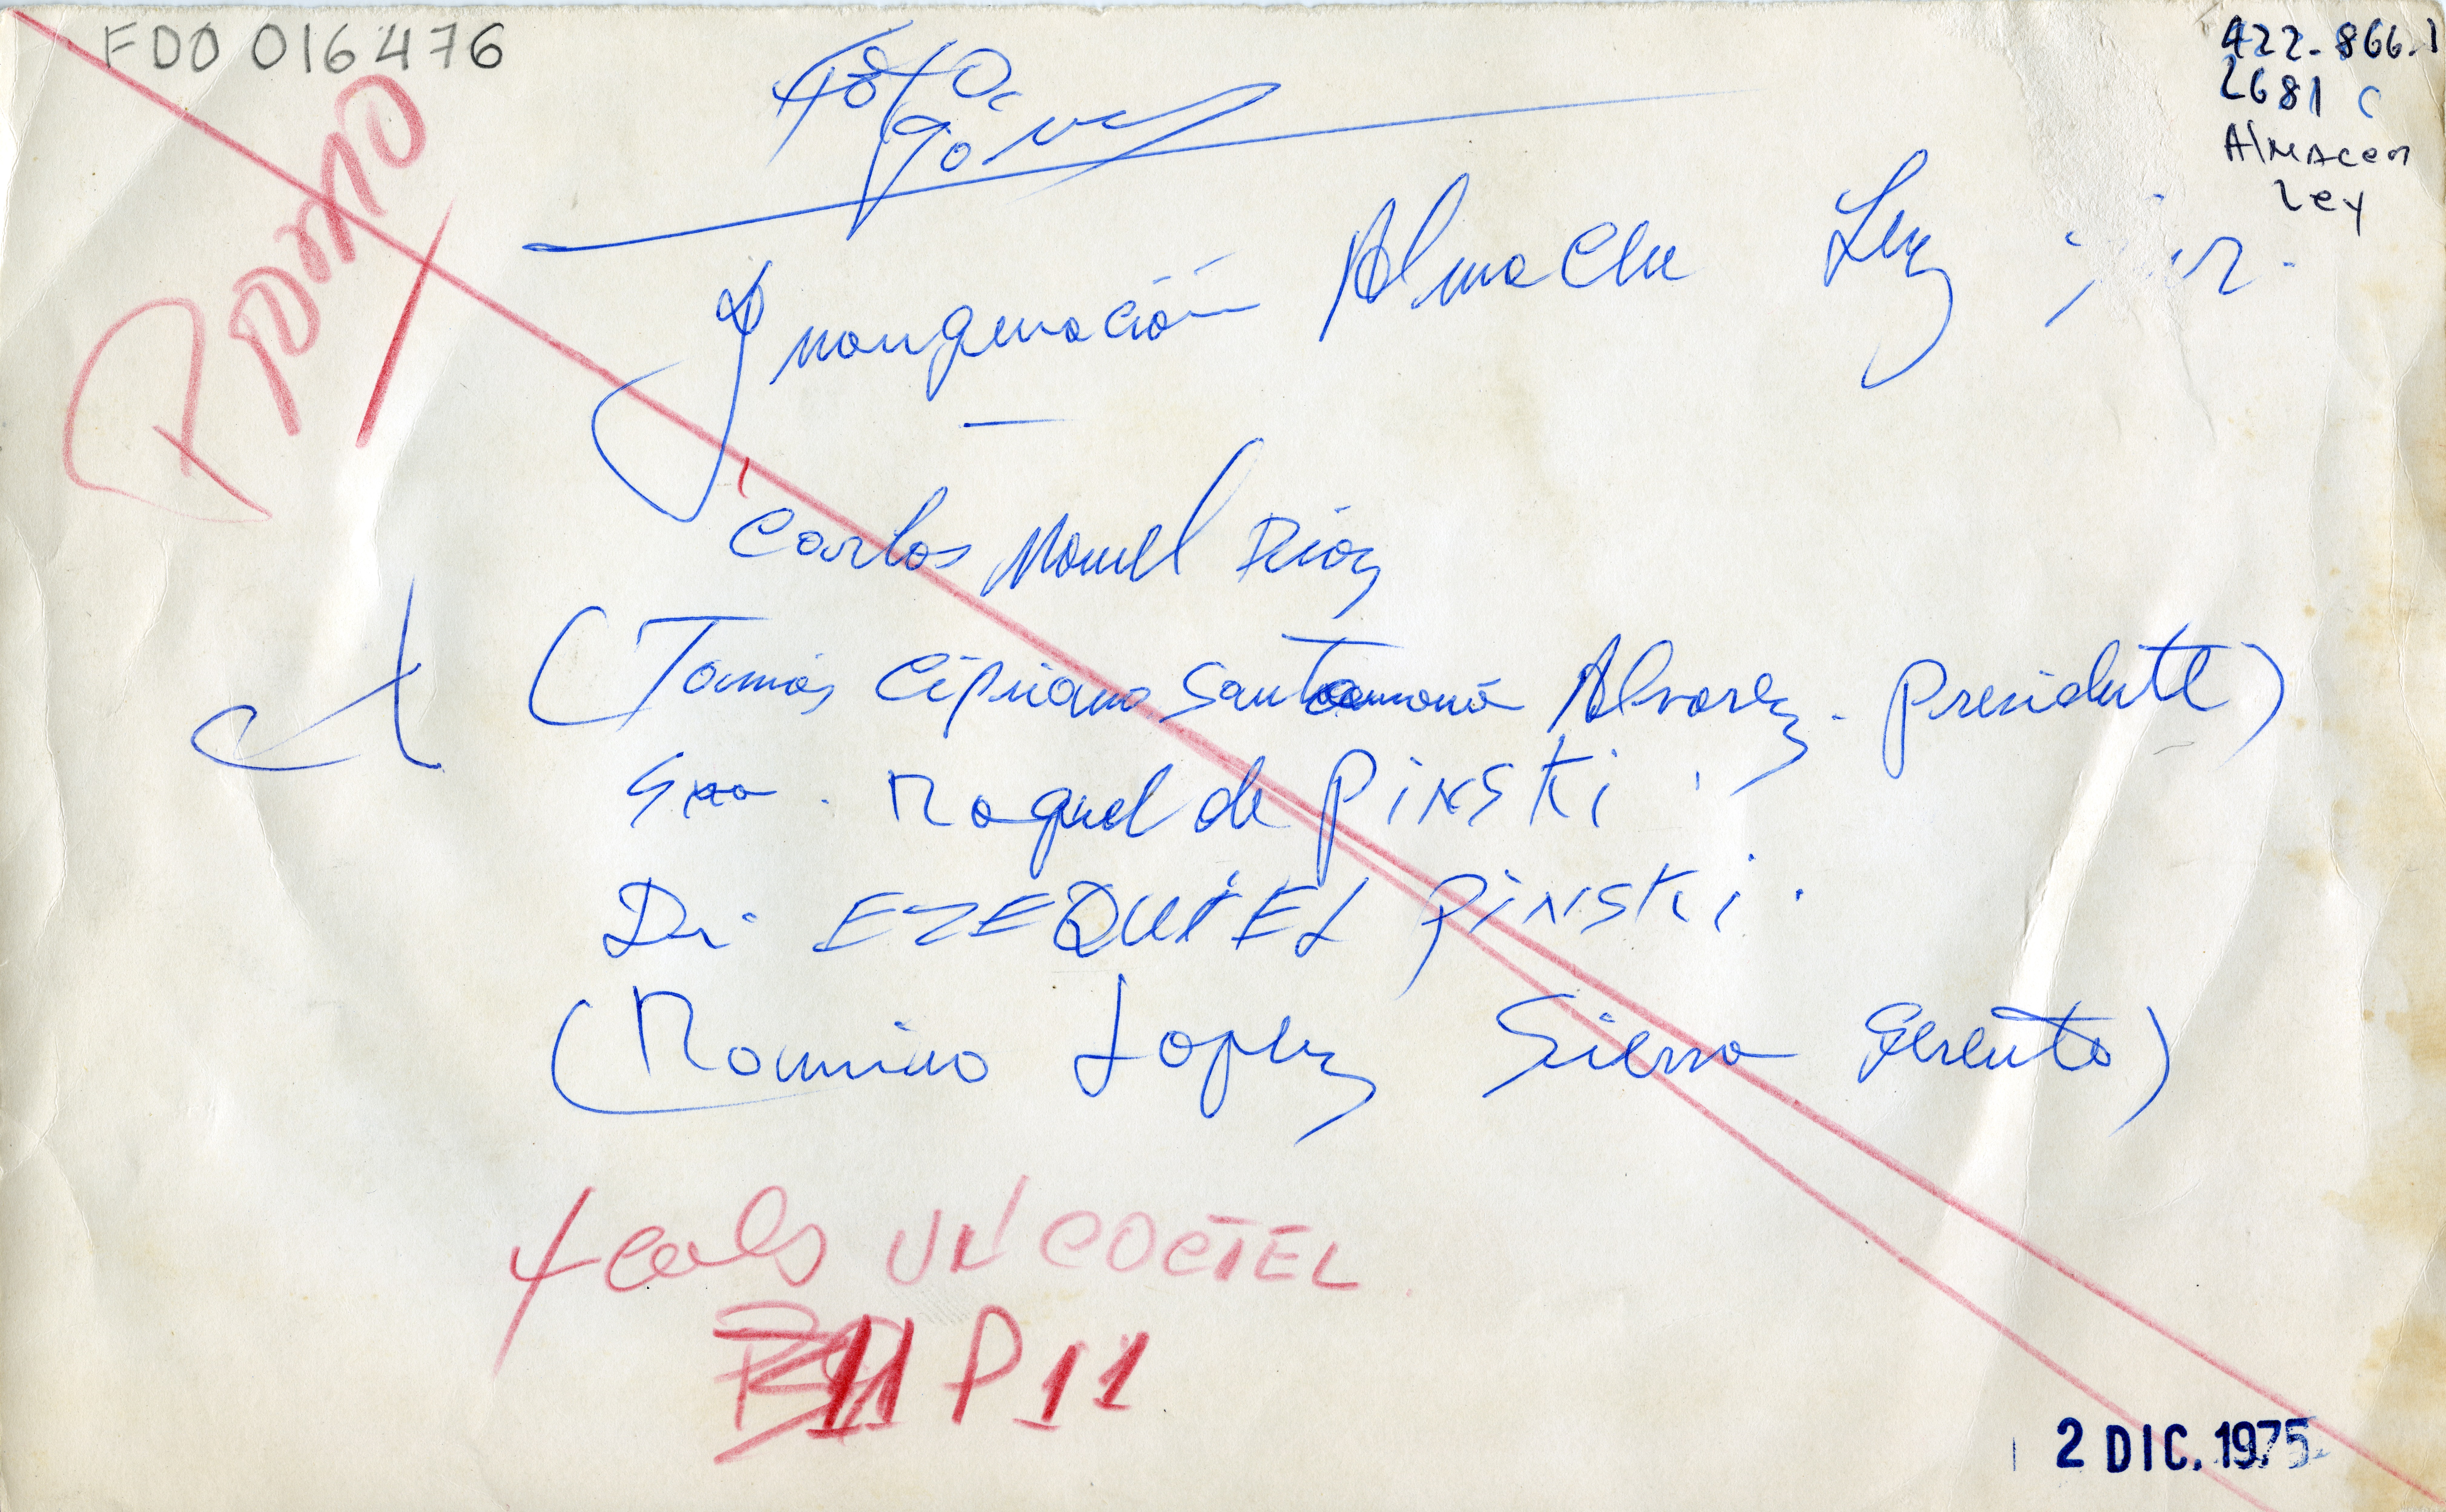 FDO 016476
422-866.1
2681 C
Almacen
Ley
Promo
Foto
Inauguración Almacen Ley
Carlos Manuel Diaz
(Tomás Cipriano Santamaria Alvarez. Presidente)
Sra. Raquel de PiNSKi.
Dr. EZEQUiEL PiNSKi.
(Ramiro Lopez Sierra Gerente)
4 cols UN COCTEL
P 11
2 DIC. 1975